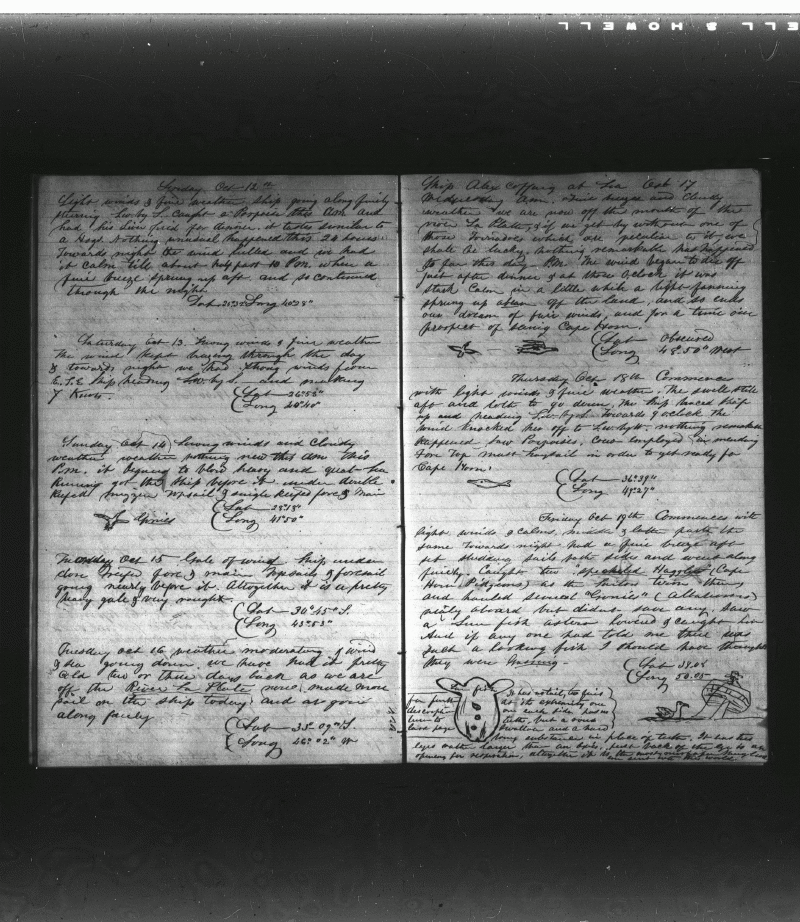 Light winds & fine weather ship going along finely
stearing S.w. by S. Caught a Porpoise this Am and
had his Liver fried for Supper. it tastes similar to
a Hogs. Nothing unusual happened this 24 hours.
Towards night the wind lulled and we had
it Calm till about half past 10 P.M. when a
fine breeze sprung up aft. and so continued
through the night.
Lat Long 40°28"
Saturday Oct 13. Strong winds & fine weather
The wind kept through the day
& towards night we had strong winds from
E.S.E Ship heading S.W. by S. and making
7 Knots.
Lat 26°52"
Long 40°40"
Sunday Oct 14 Strong winds and Cloudy
weather nothing new this Am this
P.m. it begins to blow heavy and great sea
running got the ship before it under double
Reefed Topsail & single Reefed fore & main
Lat
Long 41°50"
Gonies
Monday Oct 15 Gale of wind Ship under
close Reefed fore & main Topsails & foresail
going nearly before it. Altogether it is a pretty
heavy gale & very
Lat 34°45" S.
Long 43°53"
Tuesday Oct 16 weather moderating & wind
& sea going down. we have had it pretty
Cold two or three days back as we are
off the River La Plata now, made more
sail on the ship today and are going
along finely
Lat 35°09" S.
Long 46°02" W
Ship Alex Coffin at Sea Oct 17
Wednesday Am. Fine breeze and Cloudy
weather we are now off the mouth of the
river La Platte, & if we get by without one of
those Tornados which are peculiar to it we
shall be lucky, nothing remarkable has happened
so far this day. P.M. The wind began to die off
just after dinner & at three Oclock it was
stark Calm, in a little while a light fanning
sprung up Off the land, and so ends
our dream of fair winds, and for a time our
prospect of seeing Cape Horn.
Lat Obscured
Long 48°50" West
Thursday Oct 18th Commences
with light winds & fine weather. The swell still
aft and loth to go down, the ship braced sharp
up and heading S.W. by S. Towards 9 oclock the
wind knocked her off to S.w. by W. nothing remarkable
happened saw Porpoises. Crew employed in mending
Fore Top mast staysail in order to get ready for
Cape Horn.
Lat 36°39"
Long 49°27"
Friday Oct 19th Commences with
light winds & calms, middle & latter parts the
same towards night had a fine breeze aft
set studding sails both sides and went along
finely. Caught two speckled Hagglets (Cape
Horn Pidgeons) as the Sailors term them
and hauled several "Gonies" (Albatrosses)
nicely aboard but didnt save any. Saw
a Sun fish astern lowered & caught him
And if any one had told me there was
such a looking fish I should have thought
they were
Lat 38.04
Long 50.05
Sun fish
for further
descrip-
tion to
page
It has no tail, two fins
at the extremity, one
on each side, has no
teeth, but a
and a hard
bony substance in place of teeth. It has two
eyes rather larger than an back of the Eye is an
opening for respiration, altogether it is the most